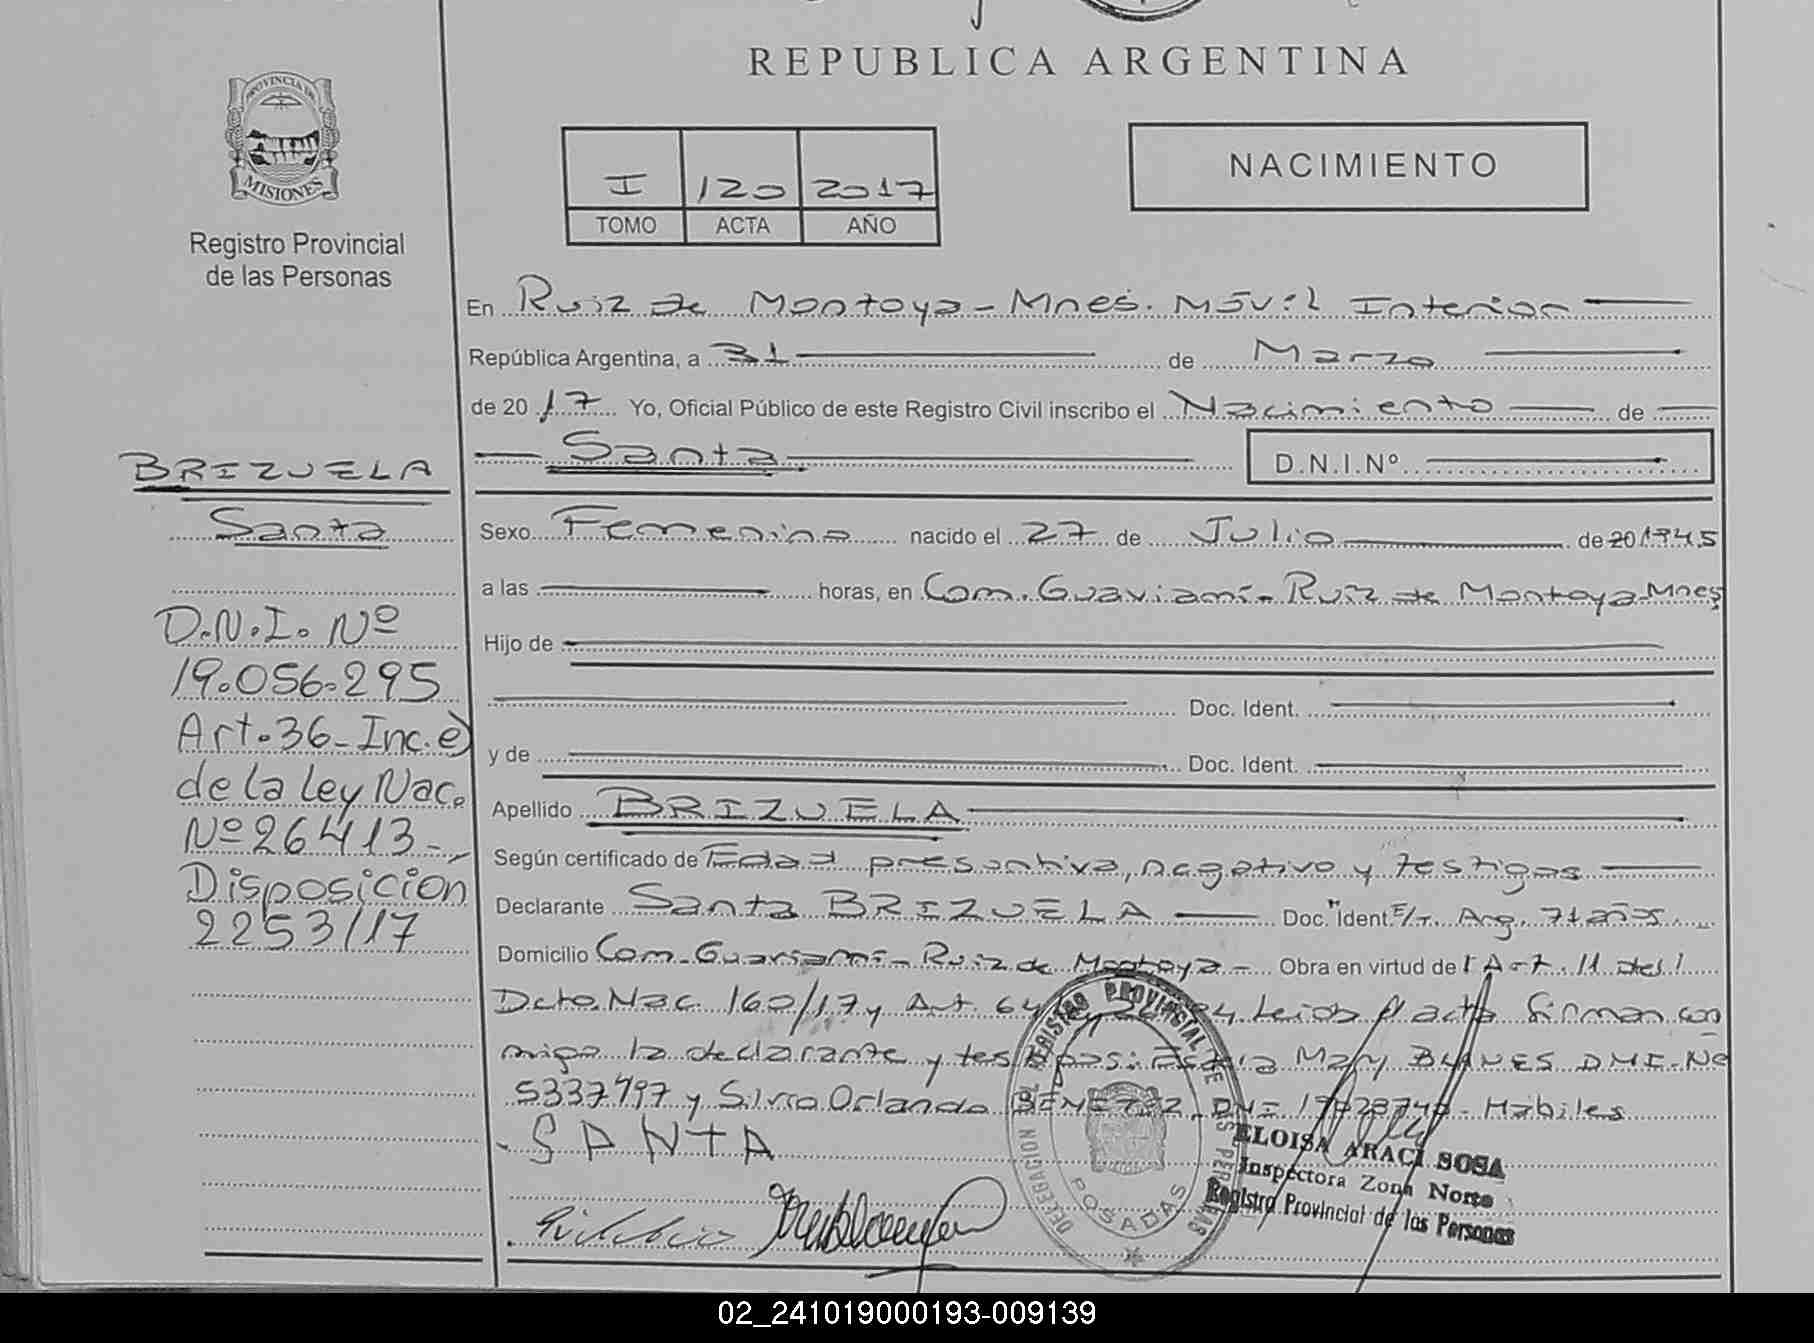 REPUBLICA ARGENTINA
PROVINCIA DE
MISIONES
Registro Provincial
de las Personas
I 120 2017
TOMO ACTA AÑO
NACIMIENTO
En Ruiz de Montoya - Mnes. Móvil Interior
República Argentina, a 31 de Marzo
de 2017 Yo, Oficial Público de este Registro Civil inscribo el Nacimiento de
Santa D.N.I.Nº
BRIZUELA
Santa
D.N.I. Nº
19.056.295
Art. 36 - Inc. e)
de la Ley Nac.
Nº 26413 -
Disposicion
2253/17
Sexo Femenino nacido el 27 de Julio de 20 1945
a las horas, en Com. Guaviramí - Ruiz de Montoya - Mnes
Hijo de
Doc. Ident.
y de Doc. Ident.
Apellido BRIZUELA
Según certificado de Edad presuntiva, negativo y testigos
Declarante Santa BRIZUELA Doc. Ident. Arg. 71 años
Domicilio Com. Guaviramí - Ruiz de Montoya - Obra en virtud del Art. 11 del
Dcto. Nac. 160/17 y Art. 64 Leida el acta firman con
migo la declarante y testigos: Mary DNI. Nº
5337797 y Silvio Orlando DNI Habiles
SANTA
DELEGACION DEL REGISTRO PROVINCIAL DE LAS PERSONAS
POSADAS
ELOISA ARACI SOSA
Inspectora Zona Norte
Registro Provincial de las Personas
02_241019000193-009139